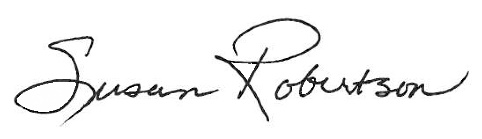 Susan Robertson